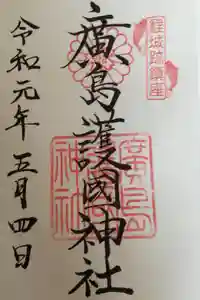 廣島護國神社
令和元年五月四日
廣島護國神社